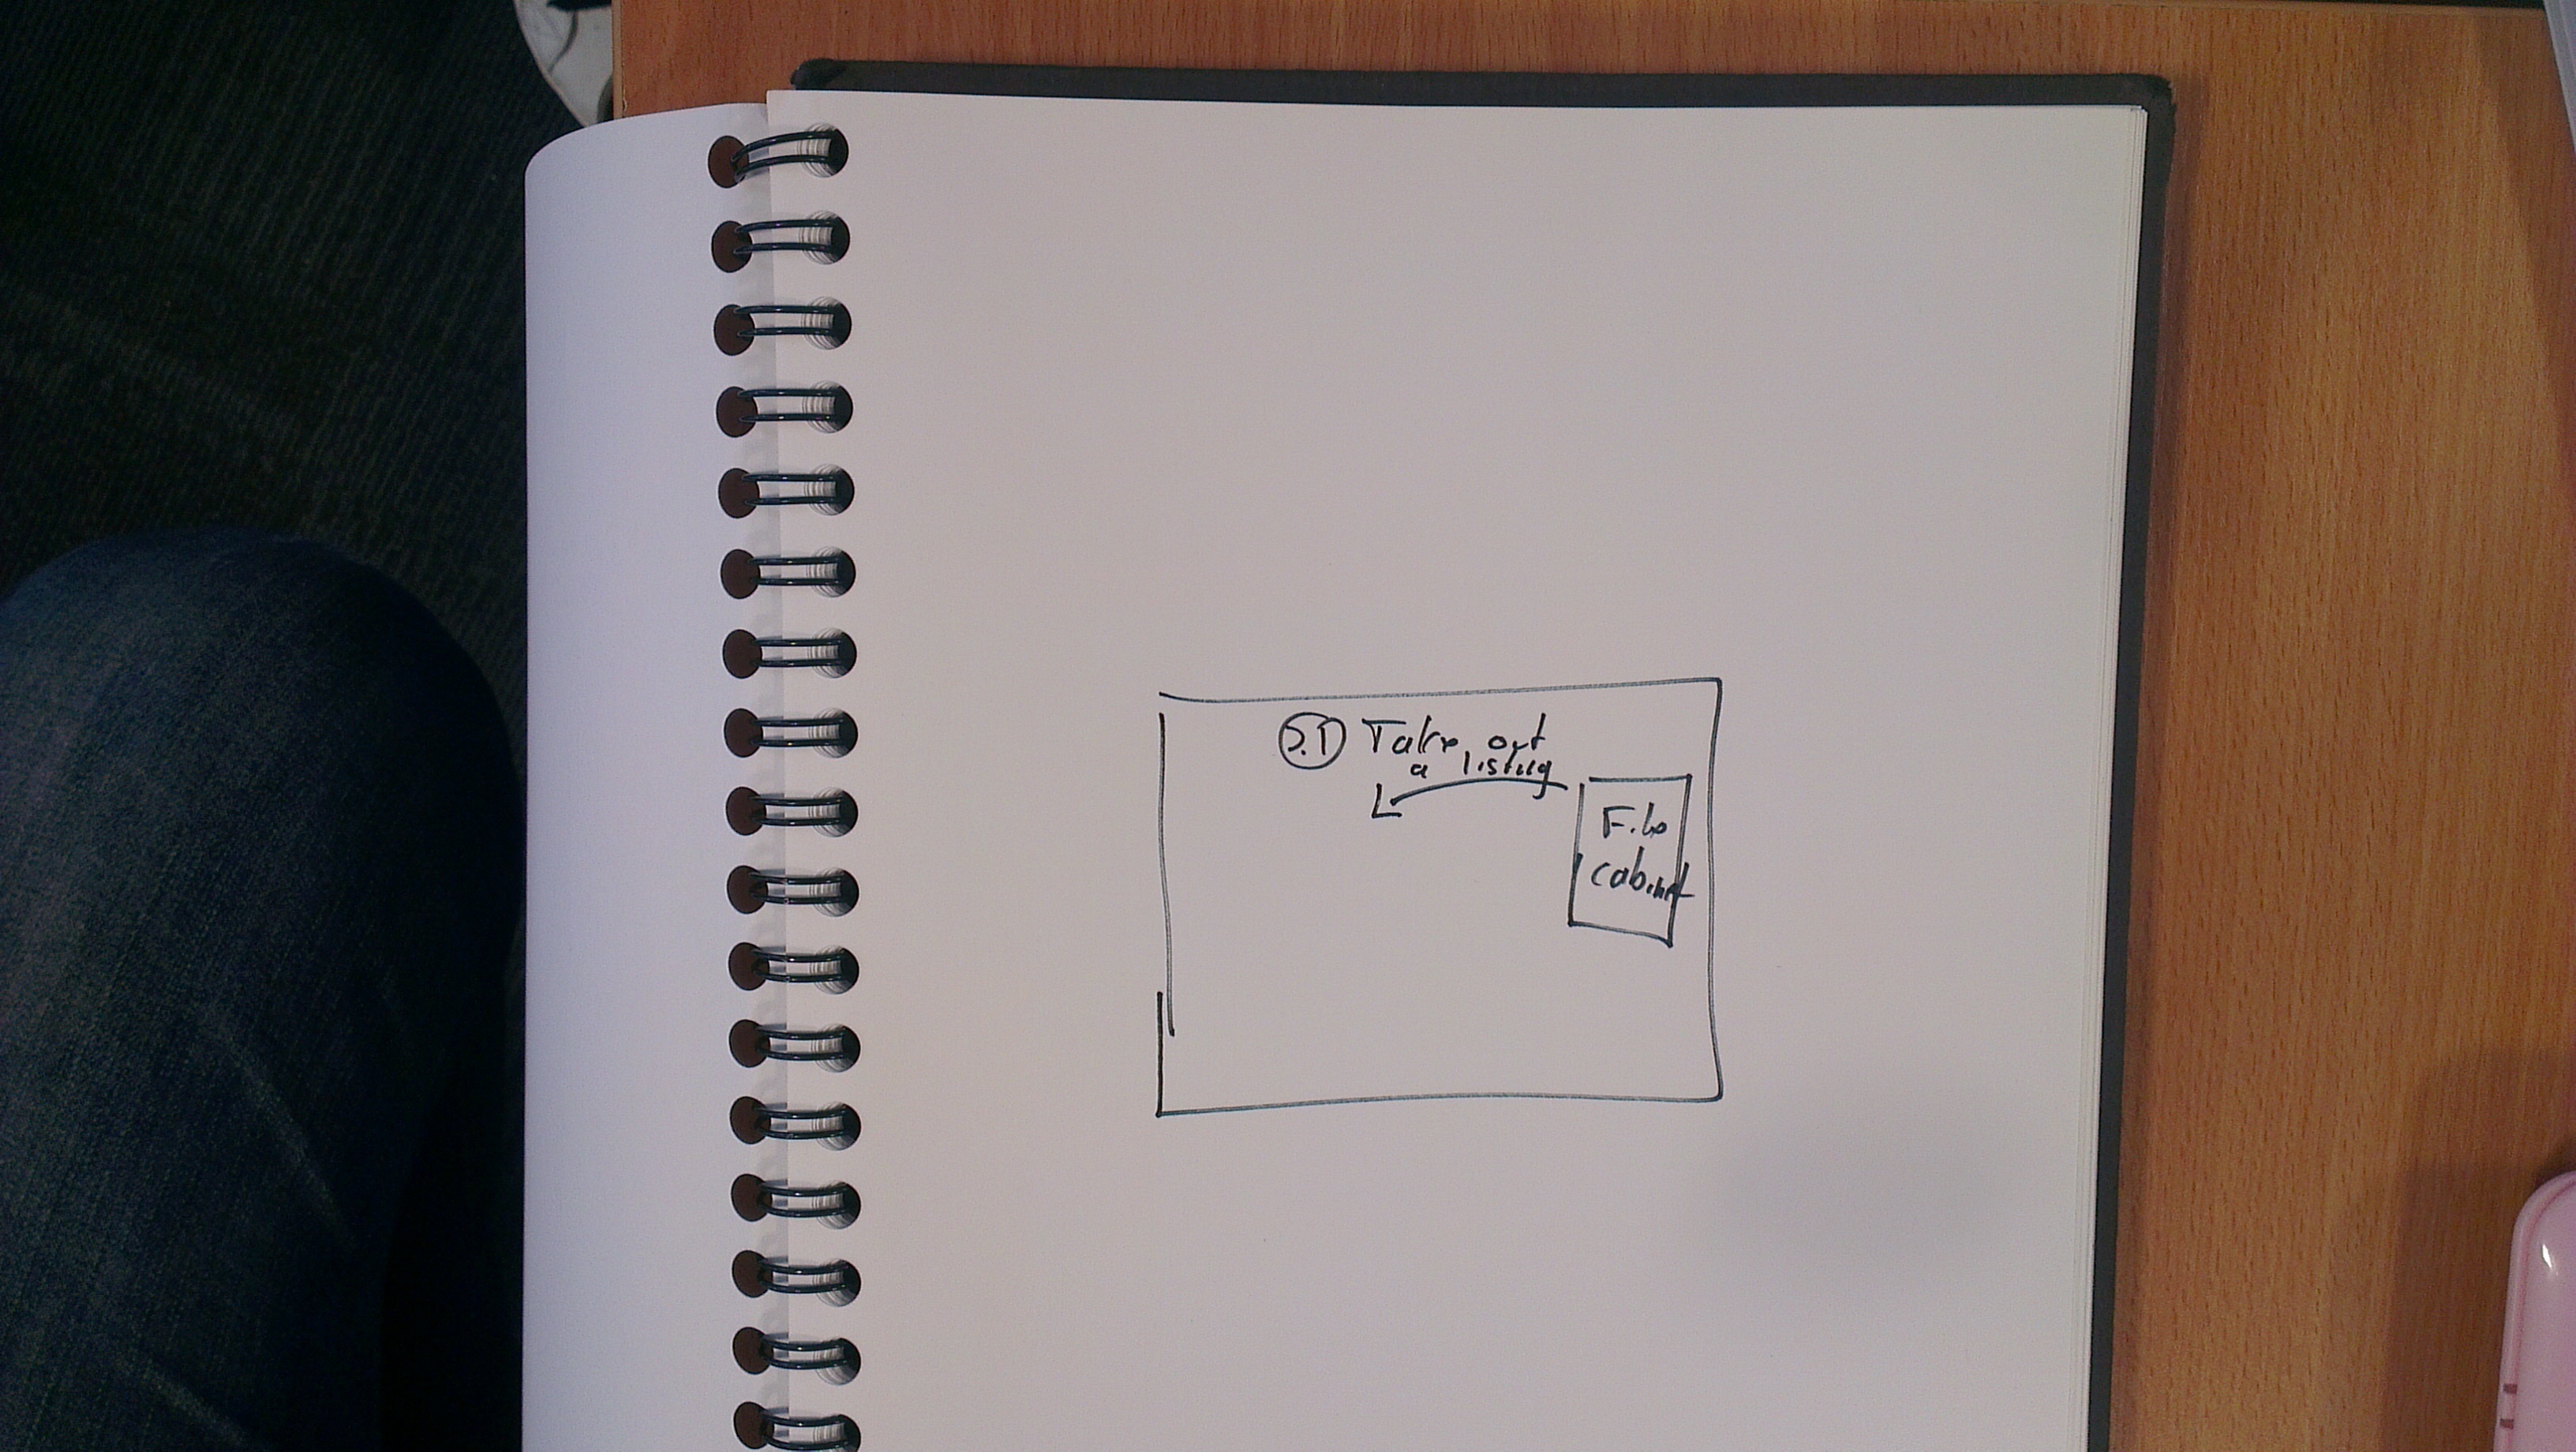 5.1 Take out
a listing
File
cabinet